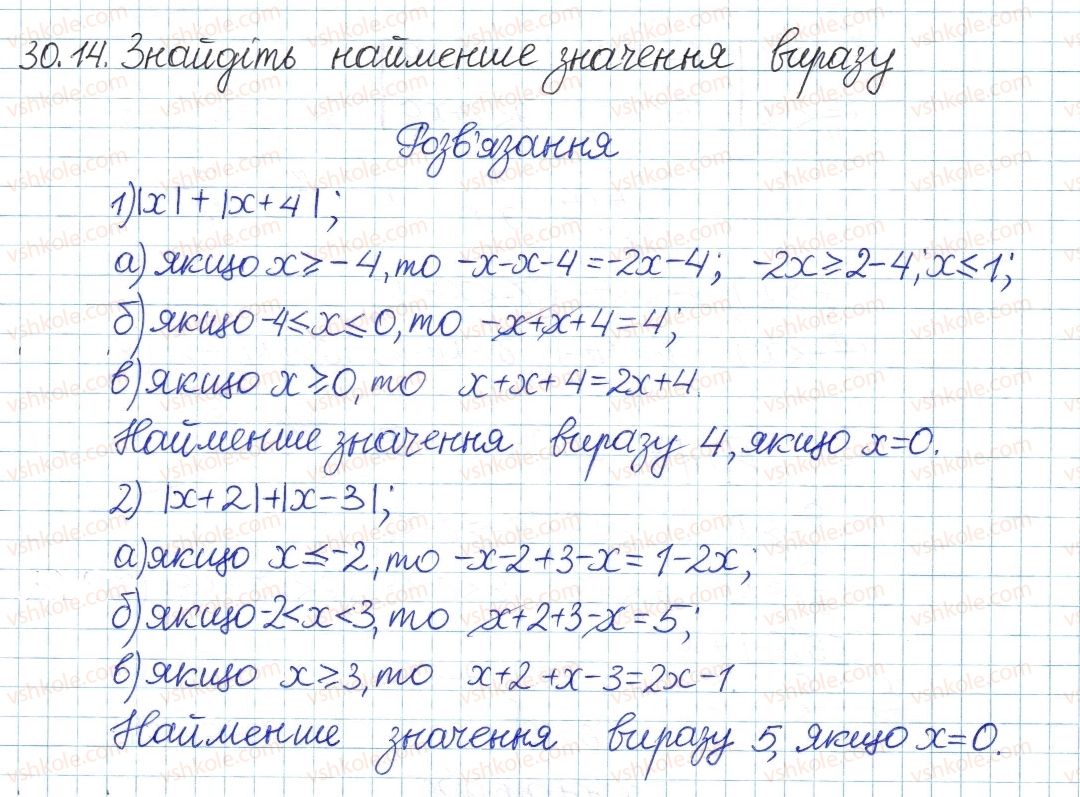 30.14. Знайдіть найменше значення виразу
Розв'язання
1) |x| + |x+4|;
а) якщо x ≥ -4, то -x-x-4 = -2x-4; -2x ≥ 2-4; x ≤ 1;
б) якщо -4 ≤ x ≤ 0, то -x+x+4 = 4;
в) якщо x ≥ 0, то x+x+4 = 2x+4.
Найменше значення виразу 4, якщо x=0.
2) |x+2|+|x-3|;
а) якщо x ≤ -2, то -x-2+3-x = 1-2x;
б) якщо -2<x<3, то x+2+3-x = 5;
в) якщо x ≥ 3, то x+2+x-3 = 2x-1.
Найменше значення виразу 5, якщо x=0.